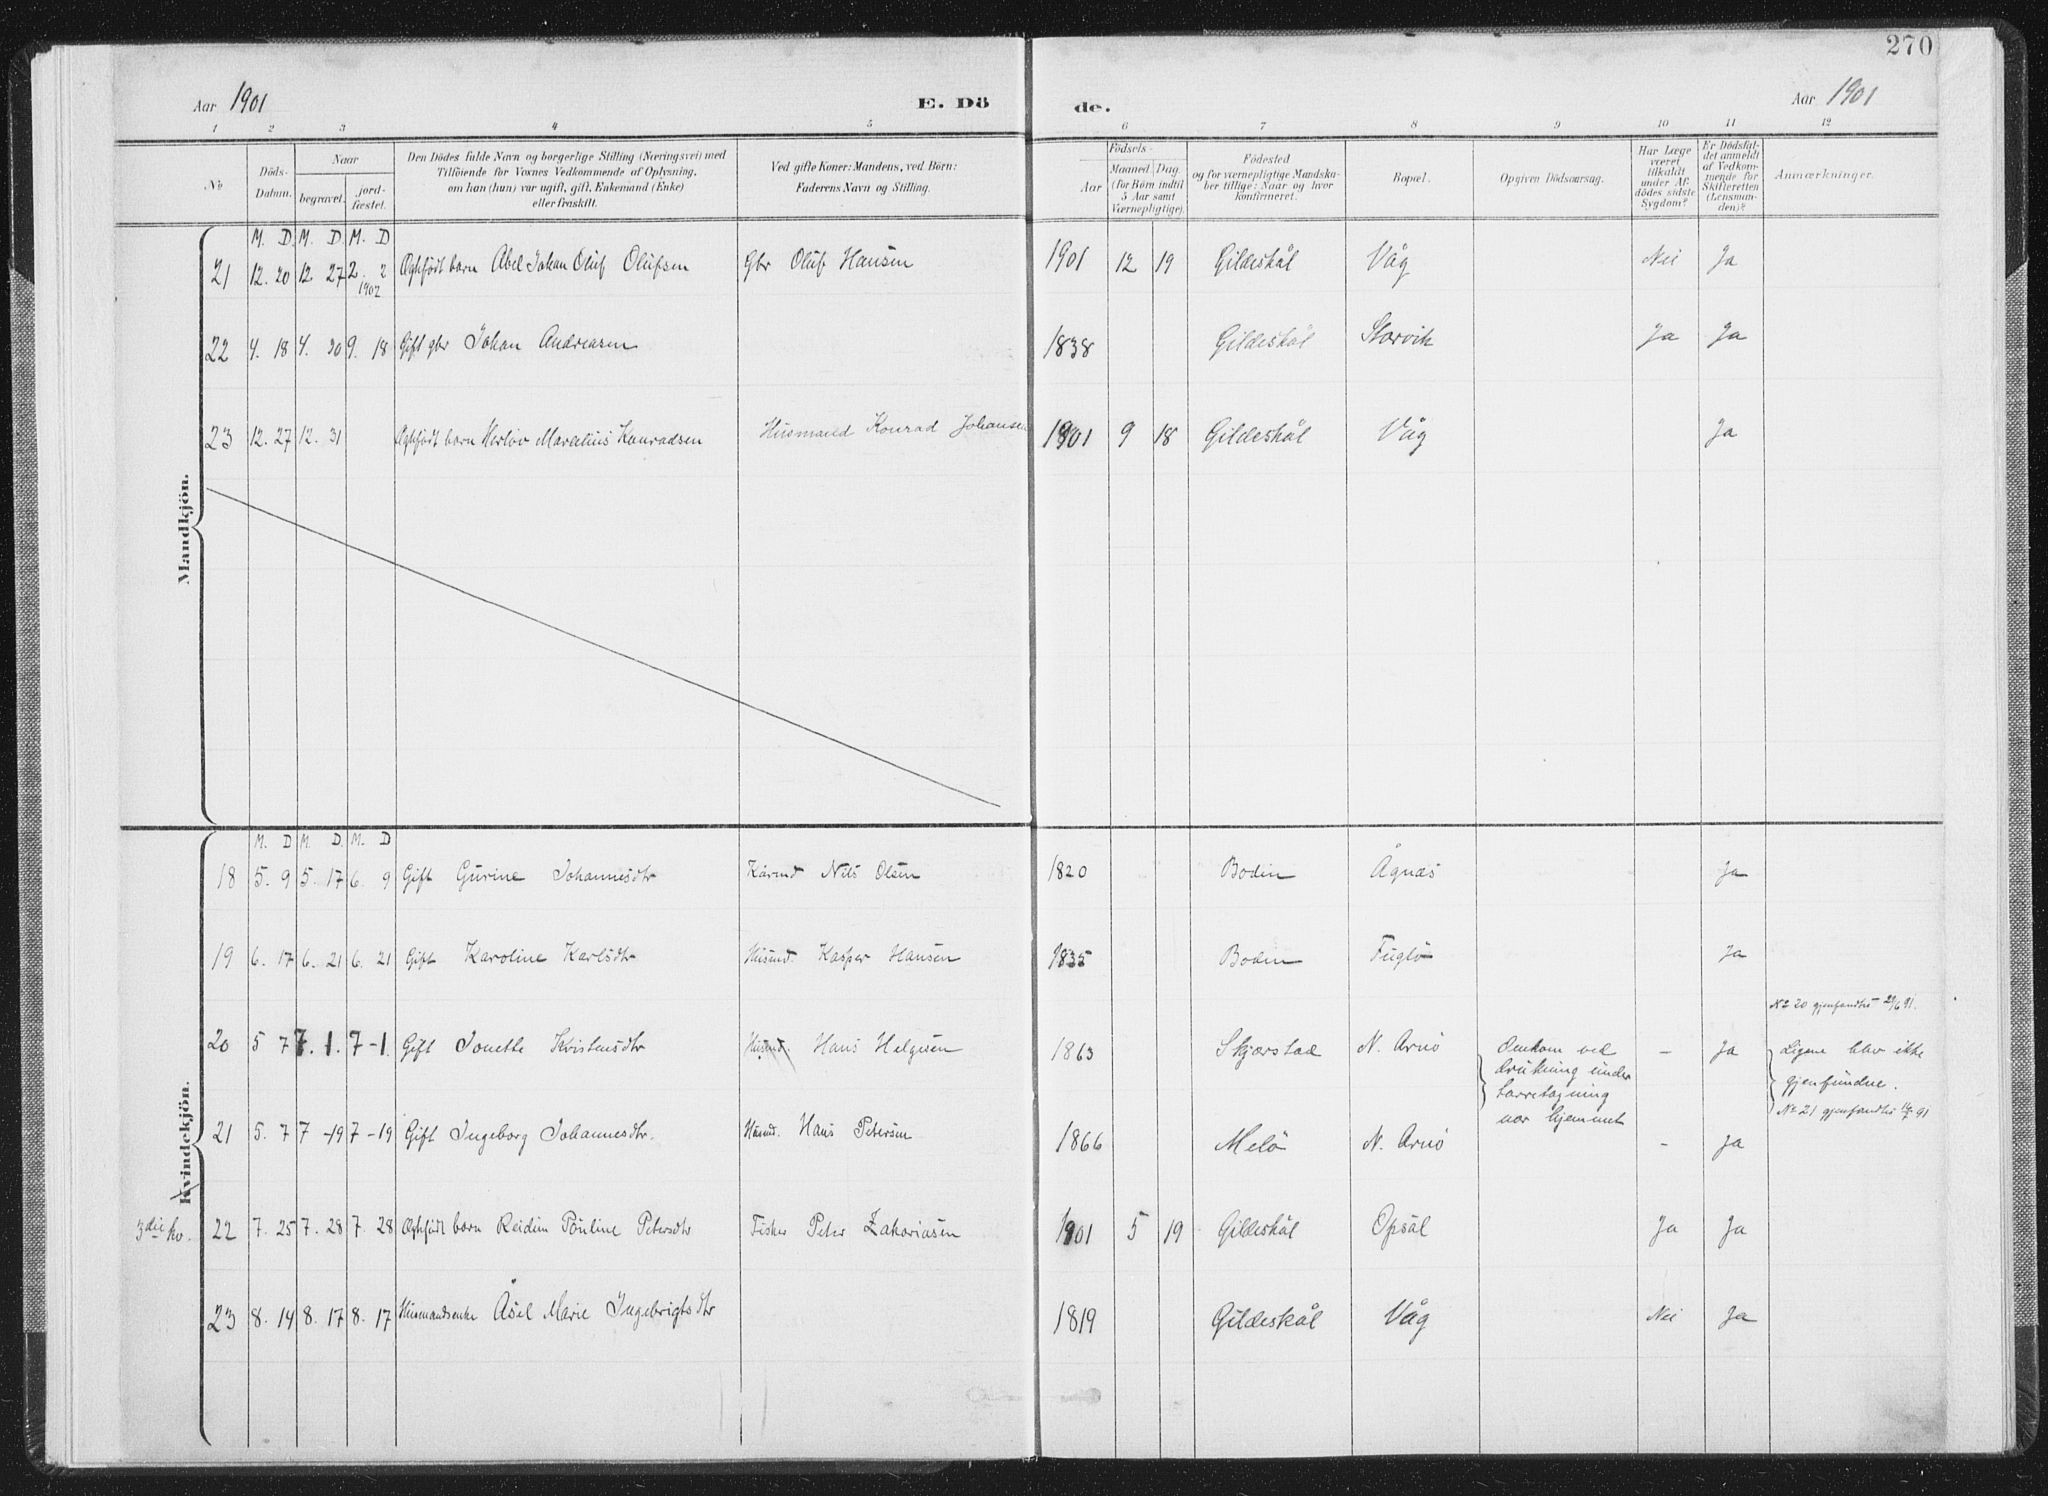 270
Aar 1901
E. Dö
de.
Aar 1901
1 2 3 4 5 6 7 8 9 10 11 12
No
Döds-
Datum.
Naar
begravet.
jord-
fæstet.
Den Dödes fulde Navn og borgerlige Stilling (Næringsvei) med
Tilföiende for Voxnes Vedkommende af Oplysning,
om han (hun) var ugift, gift, Enkemand (Enke)
eller fraskilt.
Ved gifte Koner: Mandens, ved Börn:
Faderens Navn og Stilling.
Födsels-
Aar
Maaned
Dag
(for Börn indtil
5 Aar samt
Værnepligtige).
Födested
og for værnepligtige Mandska-
ber tillige: Naar og hvor
konfirmeret.
Bopæl.
Opgiven Dödsaarsag.
Har Læge
været
tilkaldt
under Af-
dödes sidste
Sygdom?
Er Dödsfal-
det anmeldt
af Vedkom-
mende for
Skifteretten
(Lensman-
den)?
Anmærkninger.
Mandkjön.
M. D. M. D. M. D
21 12. 20 12 27 2. 2 1902 Ægtefödt barn Abel Johan Oluf Olufsen Gbr Oluf Hansen 1901 12 19 Gildeskål Våg Nei Ja
22 4. 18 4. 30 9. 18 Gift gbr Johan Andreasen 1838 Gildeskål Storvik Ja Ja
23 12. 27 12. 31 Ægtefödt barn Herlov Marelius Konradsen Husmand Konrad Johansen 1901 9 18 Gildeskål Våg Ja
Kvindekjön.
M. D M. D. M. D
18 5. 9 5. 17 6. 9 Gift Gurine Johannesdtr Kårmd Nils Olsen 1820 Bodin Ågnæs Ja
19 6. 17 6. 21 6. 21 Gift Karoline Karlsdtr Husmd. Kasper Hansen 1835 Bodin Fuglö Ja
No 20 gjenfandtes 29/6 91.
20 5 7 7. 1. 7 - 1. Gift Jonette Kristensdtr Husmd. Hans Helgesen 1863 Skjærstad N. Arnö Omkom ved
drukning under
tarretagning
nær hjemmet
- Ja Ligene blev ikke
gjenfundne.
No 21 gjenfandtes 91
21 5. 7 7 - 19 7 - 19 Gift Ingeborg Johannesdtr. Husmd. Hans Petersen 1866 Melö N. Arnö - Ja
3die kv. 22 7. 25 7. 28 7. 28 Ægtefödt barn Reidun Pauline Petersdtr Fisker Peter Zakariasen 1901 5 19 Gildeskål Opsal Ja Ja
23 8. 14 8. 17 8. 17 Husmandsenke Åsel Marie Ingebrigtsdtr 1819 Gildeskål Våg Nei Ja